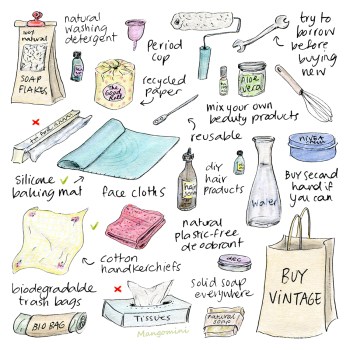 natural
washing
detergent
100%
natural
SOAP
FLAKES
Period
cup
try to
borrow
before
buying
new
The
Good
Roll
recycled
paper
Aloe
vera
mix your own
beauty products
reusable
Silicone
baking mat
face cloths
diy
hair
products
hair
soap
water
nivea
Buy second
hand if
you can
cotton
handkerchiefs
natural
plastic-free
deodorant
deo
BUY
VINTAGE
biodegradable
trash bags
BIO BAG
TISSUES
Mangomini
solid soap
everywhere
natural
soap